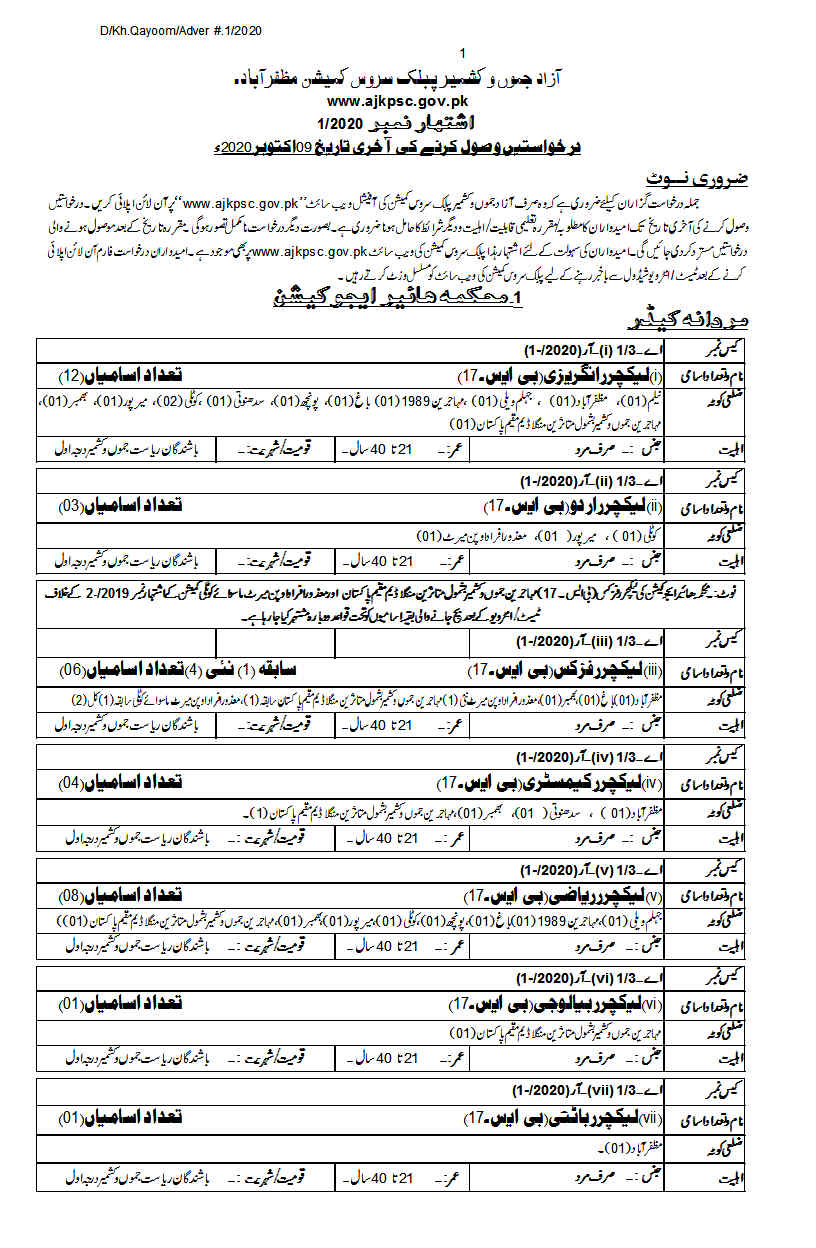 D/Kh.Qayoom/Adver #.1/2020
1
آزاد جموں و کشمیر پبلک سروس کمیشن مظفرآباد۔
www.ajkpsc.gov.pk
اشتہار نمبر 1/2020
درخواستیں وصول کرنے کی آخری تاریخ 09 اکتوبر 2020ء
ضروری نوٹ
جملہ درخواست گزاران کیلئے ضروری ہے کہ وہ صرف آزاد جموں و کشمیر پبلک سروس کمیشن کی آفیشل ویب سائٹ ”www.ajkpsc.gov.pk“ پر آن لائن اپلائی کریں۔ درخواستیں
وصول کرنے کی آخری تاریخ تک امیدواران کا مطلوبہ/مقررہ تعلیمی قابلیت/اہلیت و دیگر شرائط کا حامل ہونا ضروری ہے۔ بصورت دیگر درخواست نامکمل تصور ہوگی۔ مقررہ تاریخ کے بعد موصول ہونے والی
درخواستیں مسترد کر دی جائیں گی۔ امیدواران کی سہولت کے لئے اشتہار ہذا پبلک سروس کمیشن کی ویب سائٹ www.ajkpsc.gov.pk پر بھی موجود ہے۔ امیدواران درخواست فارم آن لائن اپلائی
کرنے کے بعد ٹیسٹ/انٹرویو شیڈول سے باخبر رہنے کے لیے پبلک سروس کمیشن کی ویب سائٹ کو مسلسل وزٹ کرتے رہیں۔
1۔ محکمہ ہائیر ایجوکیشن
مردانہ کیڈر
کیس نمبر اے۔1/3 (i)۔آر(2020/-1)
نام و تعداد اسامی (i) لیکچرر انگریزی (بی ایس۔17) تعداد اسامیاں (12)
ضلعی کوٹہ نیلم (01)، مظفرآباد (01)، جہلم ویلی (01)، مہاجرین 1989 (01) باغ (01)، پونچھ (01)، سدھنوتی (01)، کوٹلی (02)، میرپور (01)، بھمبر (01)،
مہاجرین جموں و کشمیر بشمول متاثرین منگلا ڈیم مقیم پاکستان (01)
اہلیت جنس :۔ صرف مرد عمر:۔ 21 تا 40 سال۔ قومیت/شہریت:۔ باشندگان ریاست جموں و کشمیر درجہ اول
کیس نمبر اے۔1/3 (ii)۔آر(2020/-1)
نام و تعداد اسامی (ii) لیکچرر اردو (بی ایس۔17) تعداد اسامیاں (03)
ضلعی کوٹہ کوٹلی (01)، میرپور (01)، معذور افراد اوپن میرٹ (01)
اہلیت جنس :۔ صرف مرد عمر:۔ 21 تا 40 سال۔ قومیت/شہریت:۔ باشندگان ریاست جموں و کشمیر درجہ اول
نوٹ:۔ محکمہ ہائیر ایجوکیشن کی لیکچرر فزکس (بی ایس۔17) مہاجرین جموں و کشمیر بشمول متاثرین منگلا ڈیم مقیم پاکستان اور معذور افراد اوپن میرٹ ماسوائے کوٹلی کمیشن کے اشتہار نمبر 2019/-2 کے خلاف
ٹیسٹ/انٹرویو کے بعد بچ جانے والی بقیہ اسامیوں کو تحت قواعد دوبارہ مشتہر کیا جا رہا ہے۔
کیس نمبر اے۔1/3 (iii)۔آر(2020/-1)
نام و تعداد اسامی (iii) لیکچرر فزکس (بی ایس۔17) سابقہ (1) نئی (4) تعداد اسامیاں (06)
ضلعی کوٹہ مظفرآباد (01) باغ (01)، بھمبر (01)، معذور افراد اوپن میرٹ نئی (1) مہاجرین جموں و کشمیر بشمول متاثرین منگلا ڈیم مقیم پاکستان سابقہ (1)، معذور افراد اوپن میرٹ ماسوائے کوٹلی سابقہ (1) کل (2)
اہلیت جنس :۔ صرف مرد عمر:۔ 21 تا 40 سال۔ قومیت/شہریت:۔ باشندگان ریاست جموں و کشمیر درجہ اول
کیس نمبر اے۔1/3 (iv)۔آر(2020/-1)
نام و تعداد اسامی (iv) لیکچرر کیمسٹری (بی ایس۔17) تعداد اسامیاں (04)
ضلعی کوٹہ مظفرآباد (01)، سدھنوتی (01)، بھمبر (01)، مہاجرین جموں و کشمیر بشمول متاثرین منگلا ڈیم مقیم پاکستان (1)۔
اہلیت جنس :۔ صرف مرد عمر:۔ 21 تا 40 سال۔ قومیت/شہریت:۔ باشندگان ریاست جموں و کشمیر درجہ اول
کیس نمبر اے۔1/3 (v)۔آر(2020/-1)
نام و تعداد اسامی (v) لیکچرر ریاضی (بی ایس۔17) تعداد اسامیاں (08)
ضلعی کوٹہ جہلم ویلی (01)، مہاجرین 1989 (01) باغ (01)، پونچھ (01)، کوٹلی (01)، میرپور (01) بھمبر (01)، مہاجرین جموں و کشمیر بشمول متاثرین منگلا ڈیم مقیم پاکستان (01))
اہلیت جنس :۔ صرف مرد عمر:۔ 21 تا 40 سال۔ قومیت/شہریت:۔ باشندگان ریاست جموں و کشمیر درجہ اول
کیس نمبر اے۔1/3 (vi)۔آر(2020/-1)
نام و تعداد اسامی (vi) لیکچرر بیالوجی (بی ایس۔17) تعداد اسامیاں (01)
ضلعی کوٹہ مہاجرین جموں و کشمیر بشمول متاثرین منگلا ڈیم مقیم پاکستان (01)
اہلیت جنس :۔ صرف مرد عمر:۔ 21 تا 40 سال۔ قومیت/شہریت:۔ باشندگان ریاست جموں و کشمیر درجہ اول
کیس نمبر اے۔1/3 (vii)۔آر(2020/-1)
نام و تعداد اسامی (vii) لیکچرر باٹنی (بی ایس۔17) تعداد اسامیاں (01)
ضلعی کوٹہ مظفرآباد (01)۔
اہلیت جنس :۔ صرف مرد عمر:۔ 21 تا 40 سال۔ قومیت/شہریت:۔ باشندگان ریاست جموں و کشمیر درجہ اول